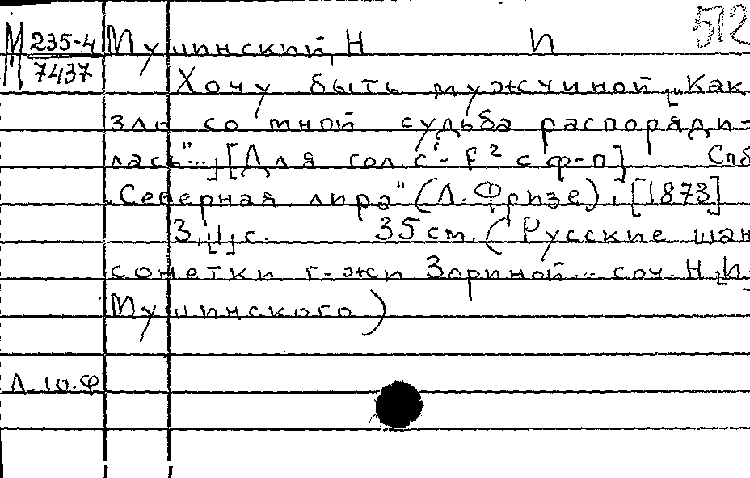 512
М 235-4 Мушинский, Н И
7437 Хочу быть мужчиной „Как
зло со мной судьба распоряди-
лась"..., [Для гол. c¹-f² с ф-п] Спб
„Северная лира" (Л. Фризе), [1873]
3, [1] с. 35 см. (Русские шан
сонетки г-жи Зориной... соч. Н. И.
Мушинского)
Л. Ю. Ф